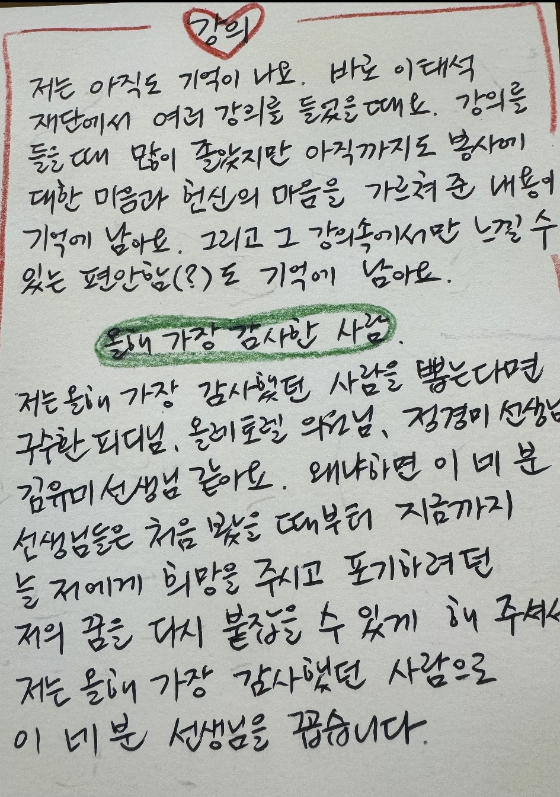 강의
저는 아직도 기억이 나요. 바로 이태석
재단에서 여러 강의를 들었을 때요. 강의를
들을 때 많이 졸았지만 아직까지도 봉사에
대한 마음과 헌신의 마음을 가르쳐 준 내용이
기억에 남아요. 그리고 그 강의속에서만 느낄 수
있는 편안함(?)도 기억에 남아요.
올해 가장 감사한 사람.
저는 올해 가장 감사했던 사람을 뽑는다면
구수환 피디님, 올레 토렐 의원님, 정경미 선생님
김유미 선생님 같아요. 왜냐하면 이 네 분
선생님들은 처음 봤을 때부터 지금까지
늘 저에게 희망을 주시고 포기하려던
저의 꿈을 다시 붙잡을 수 있게 해 주셔서
저는 올해 가장 감사했던 사람으로
이 네 분 선생님을 꼽습니다.